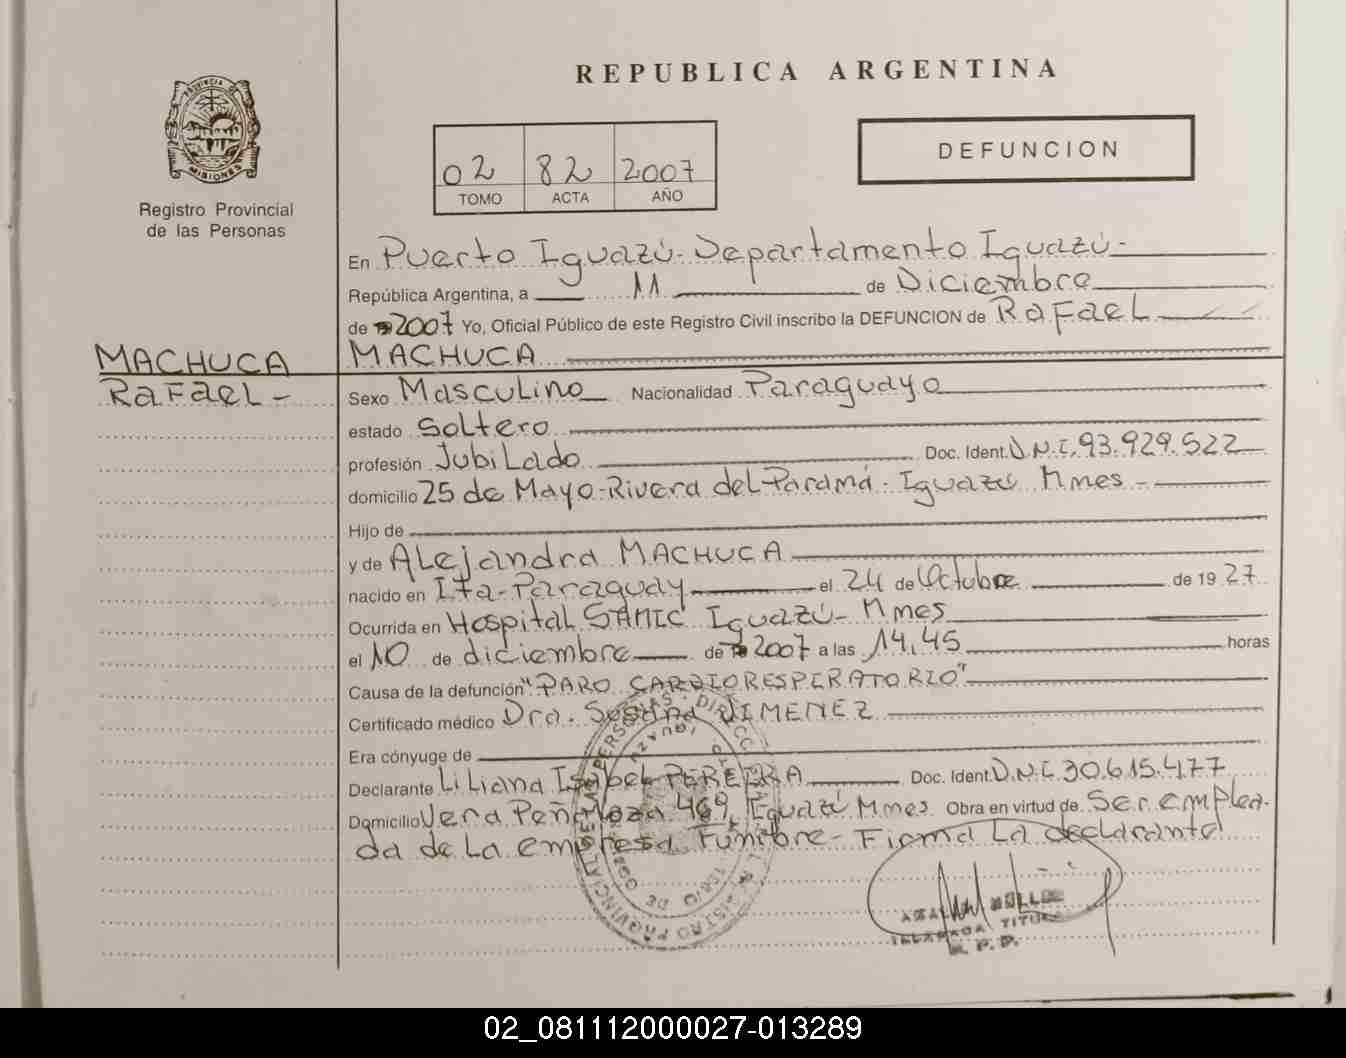 REPUBLICA ARGENTINA
PROVINCIA DE
MISIONES
Registro Provincial
de las Personas
02 82 2007
TOMO ACTA AÑO
DEFUNCION
En Puerto Iguazú-Departamento Iguazú-
República Argentina, a 11 de Diciembre
de 2007 Yo, Oficial Público de este Registro Civil inscribo la DEFUNCION de Rafael
MACHUCA
MACHUCA
Rafael-
Sexo Masculino Nacionalidad Paraguayo
estado Soltero
profesión Jubilado Doc. Ident. D.N.I. 93.929.522
domicilio 25 de Mayo-Rivera del Paraná-Iguazú Mnes-
Hijo de
y de Alejandra MACHUCA
nacido en Ita-Paraguay el 24 de Octubre de 1927
Ocurrida en Hospital SAMIC Iguazú-Mnes
el 10 de diciembre de 2007 a las 14,45 horas
Causa de la defunción "PARO CARDIORESPIRATORIO"
Certificado médico Dra. Susana JIMENEZ
Era cónyuge de
Declarante Liliana Isabel PEREIRA Doc. Ident. D.N.I. 30.615.477
Domicilio Vera Peñaloza 469 Iguazú Mnes. Obra en virtud de Ser emplea-
da de la empresa Fúnebre-Firma La declarante
02_081112000027-013289